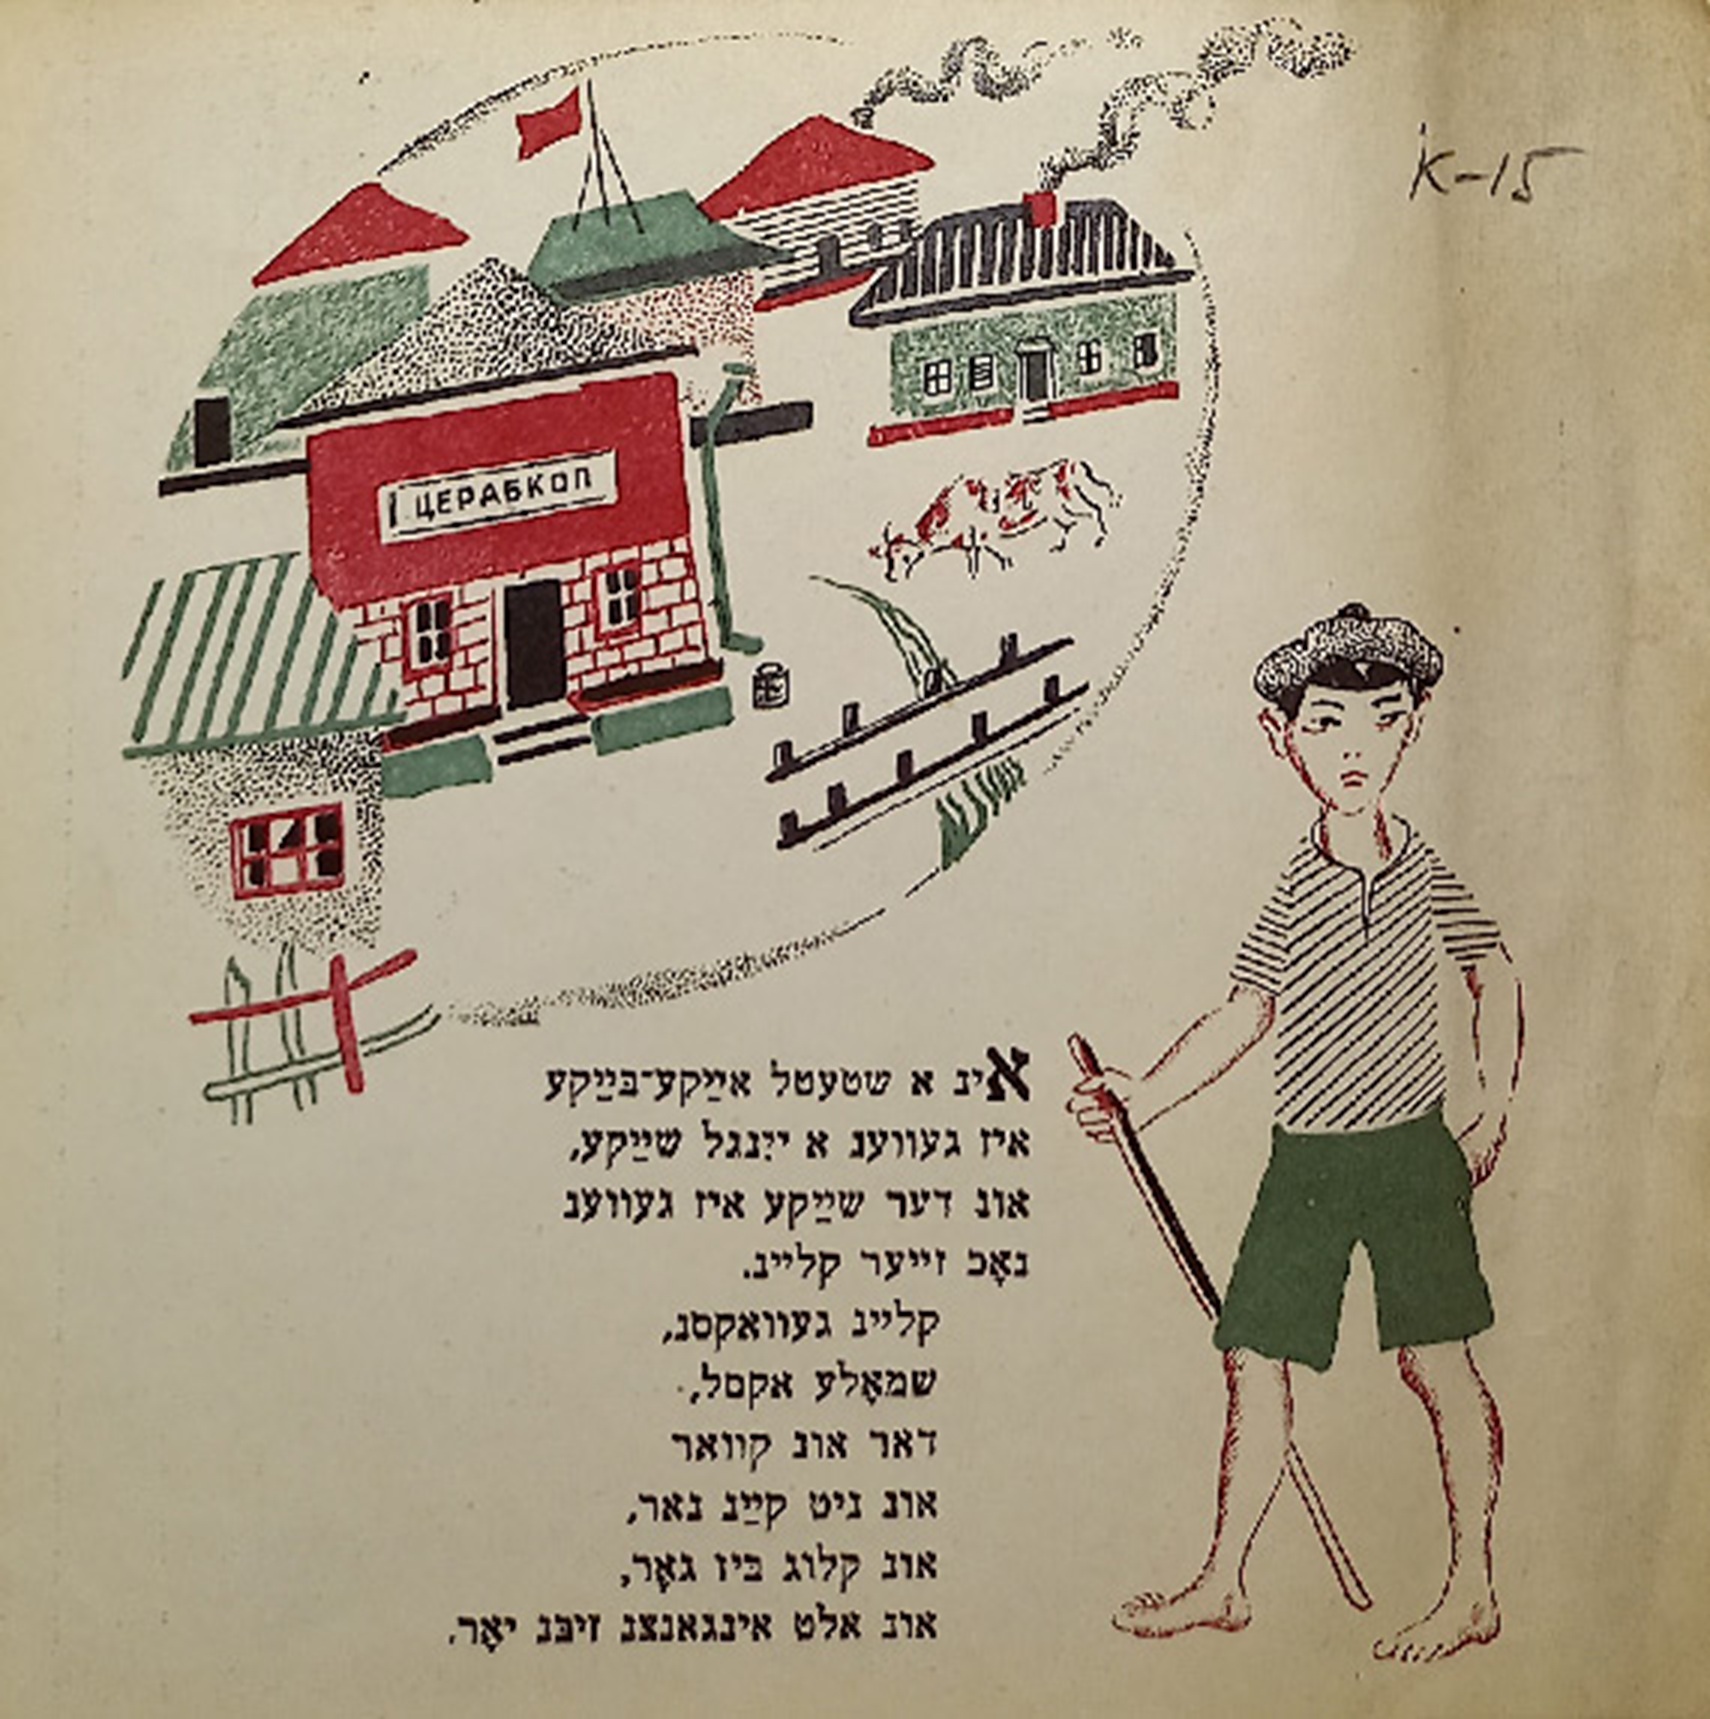 К-15
ЦЕРАБКОП
אינ א שטעטל אײַקע־בײַקע
איז געװענ א ייִנגל שײַקע,
אונ דער שײַקע איז געװענ
נאָכ זײער קלײנ.
קלײנ געװאקסנ,
שמאָלע אקסל,
דאר אונ קװאר
אונ ניט קײַנ נאר,
אונ קלוג ביז גאָר,
אונ אלט אינגאנצנ זיבנ יאָר.